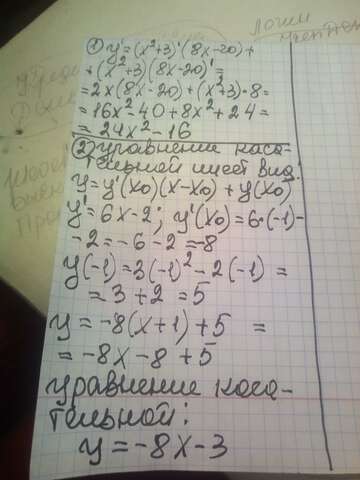 ① y'=(x²+3)'(8x-20)+
+(x²+3)(8x-20)'=
=2x(8x-20)+(x²+3)·8=
=16x²-40+8x²+24=
=24x²-16
② уравнение каса-
тельной имеет вид:
y=y'(x₀)(x-x₀)+y(x₀)
y'=6x-2; y'(x₀)=6·(-1)-
-2=-6-2=-8
y(-1)=3(-1)²-2(-1)=
=3+2=5
y=-8(x+1)+5=
=-8x-8+5
уравнение каса-
тельной:
y=-8x-3